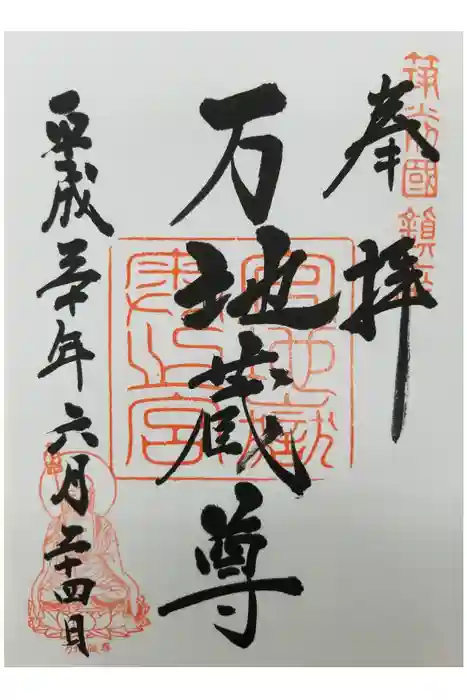 筑前國鎮座
奉拝
宮地嶽
万地蔵尊
平成三十年六月二十四日